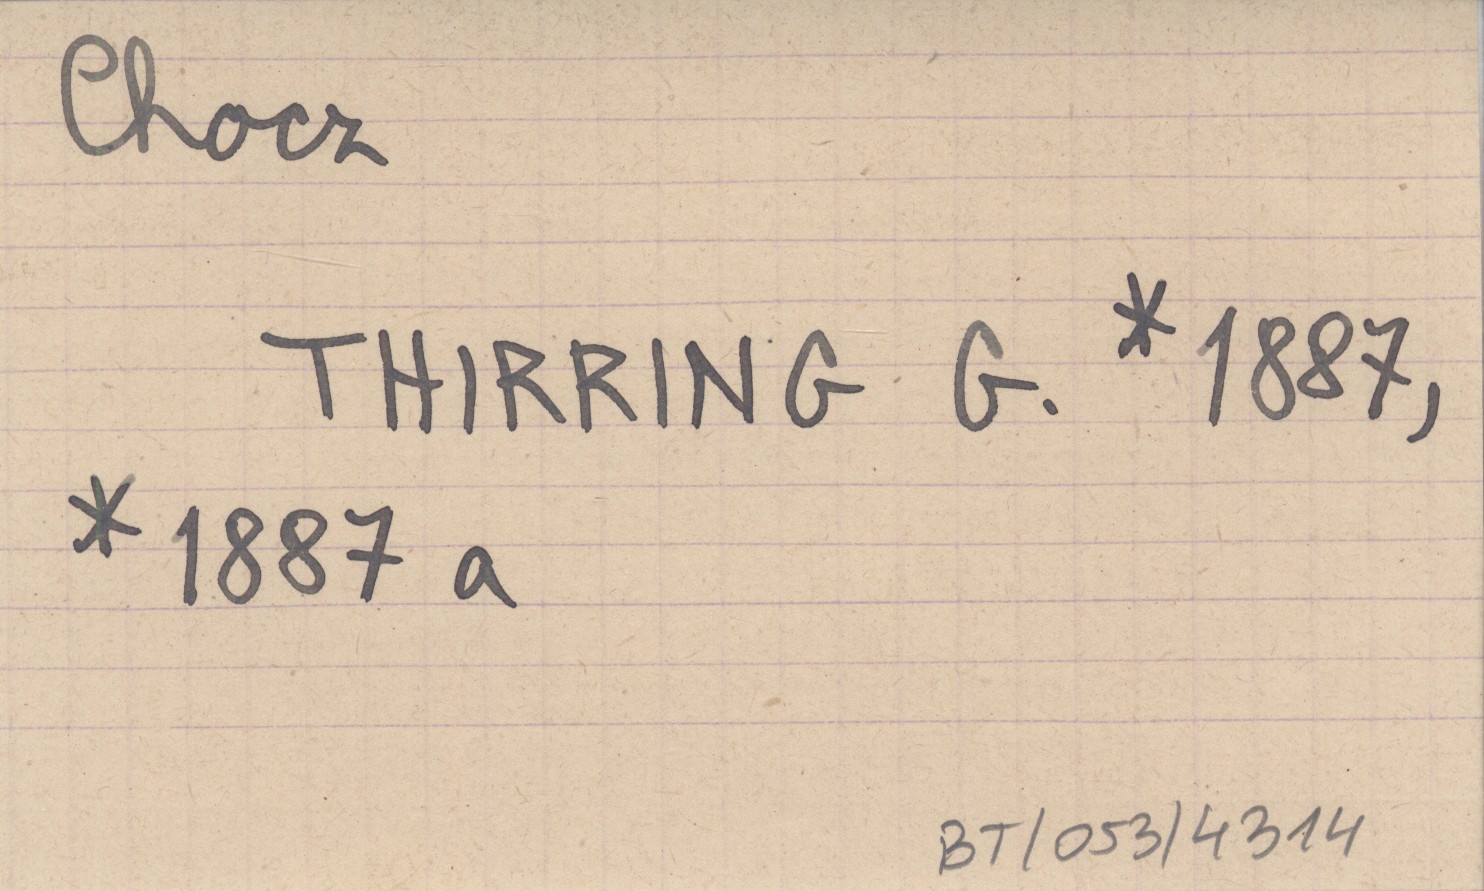 Chocz
THIRRING G. *1887,
*1887 a
BT/053/4314